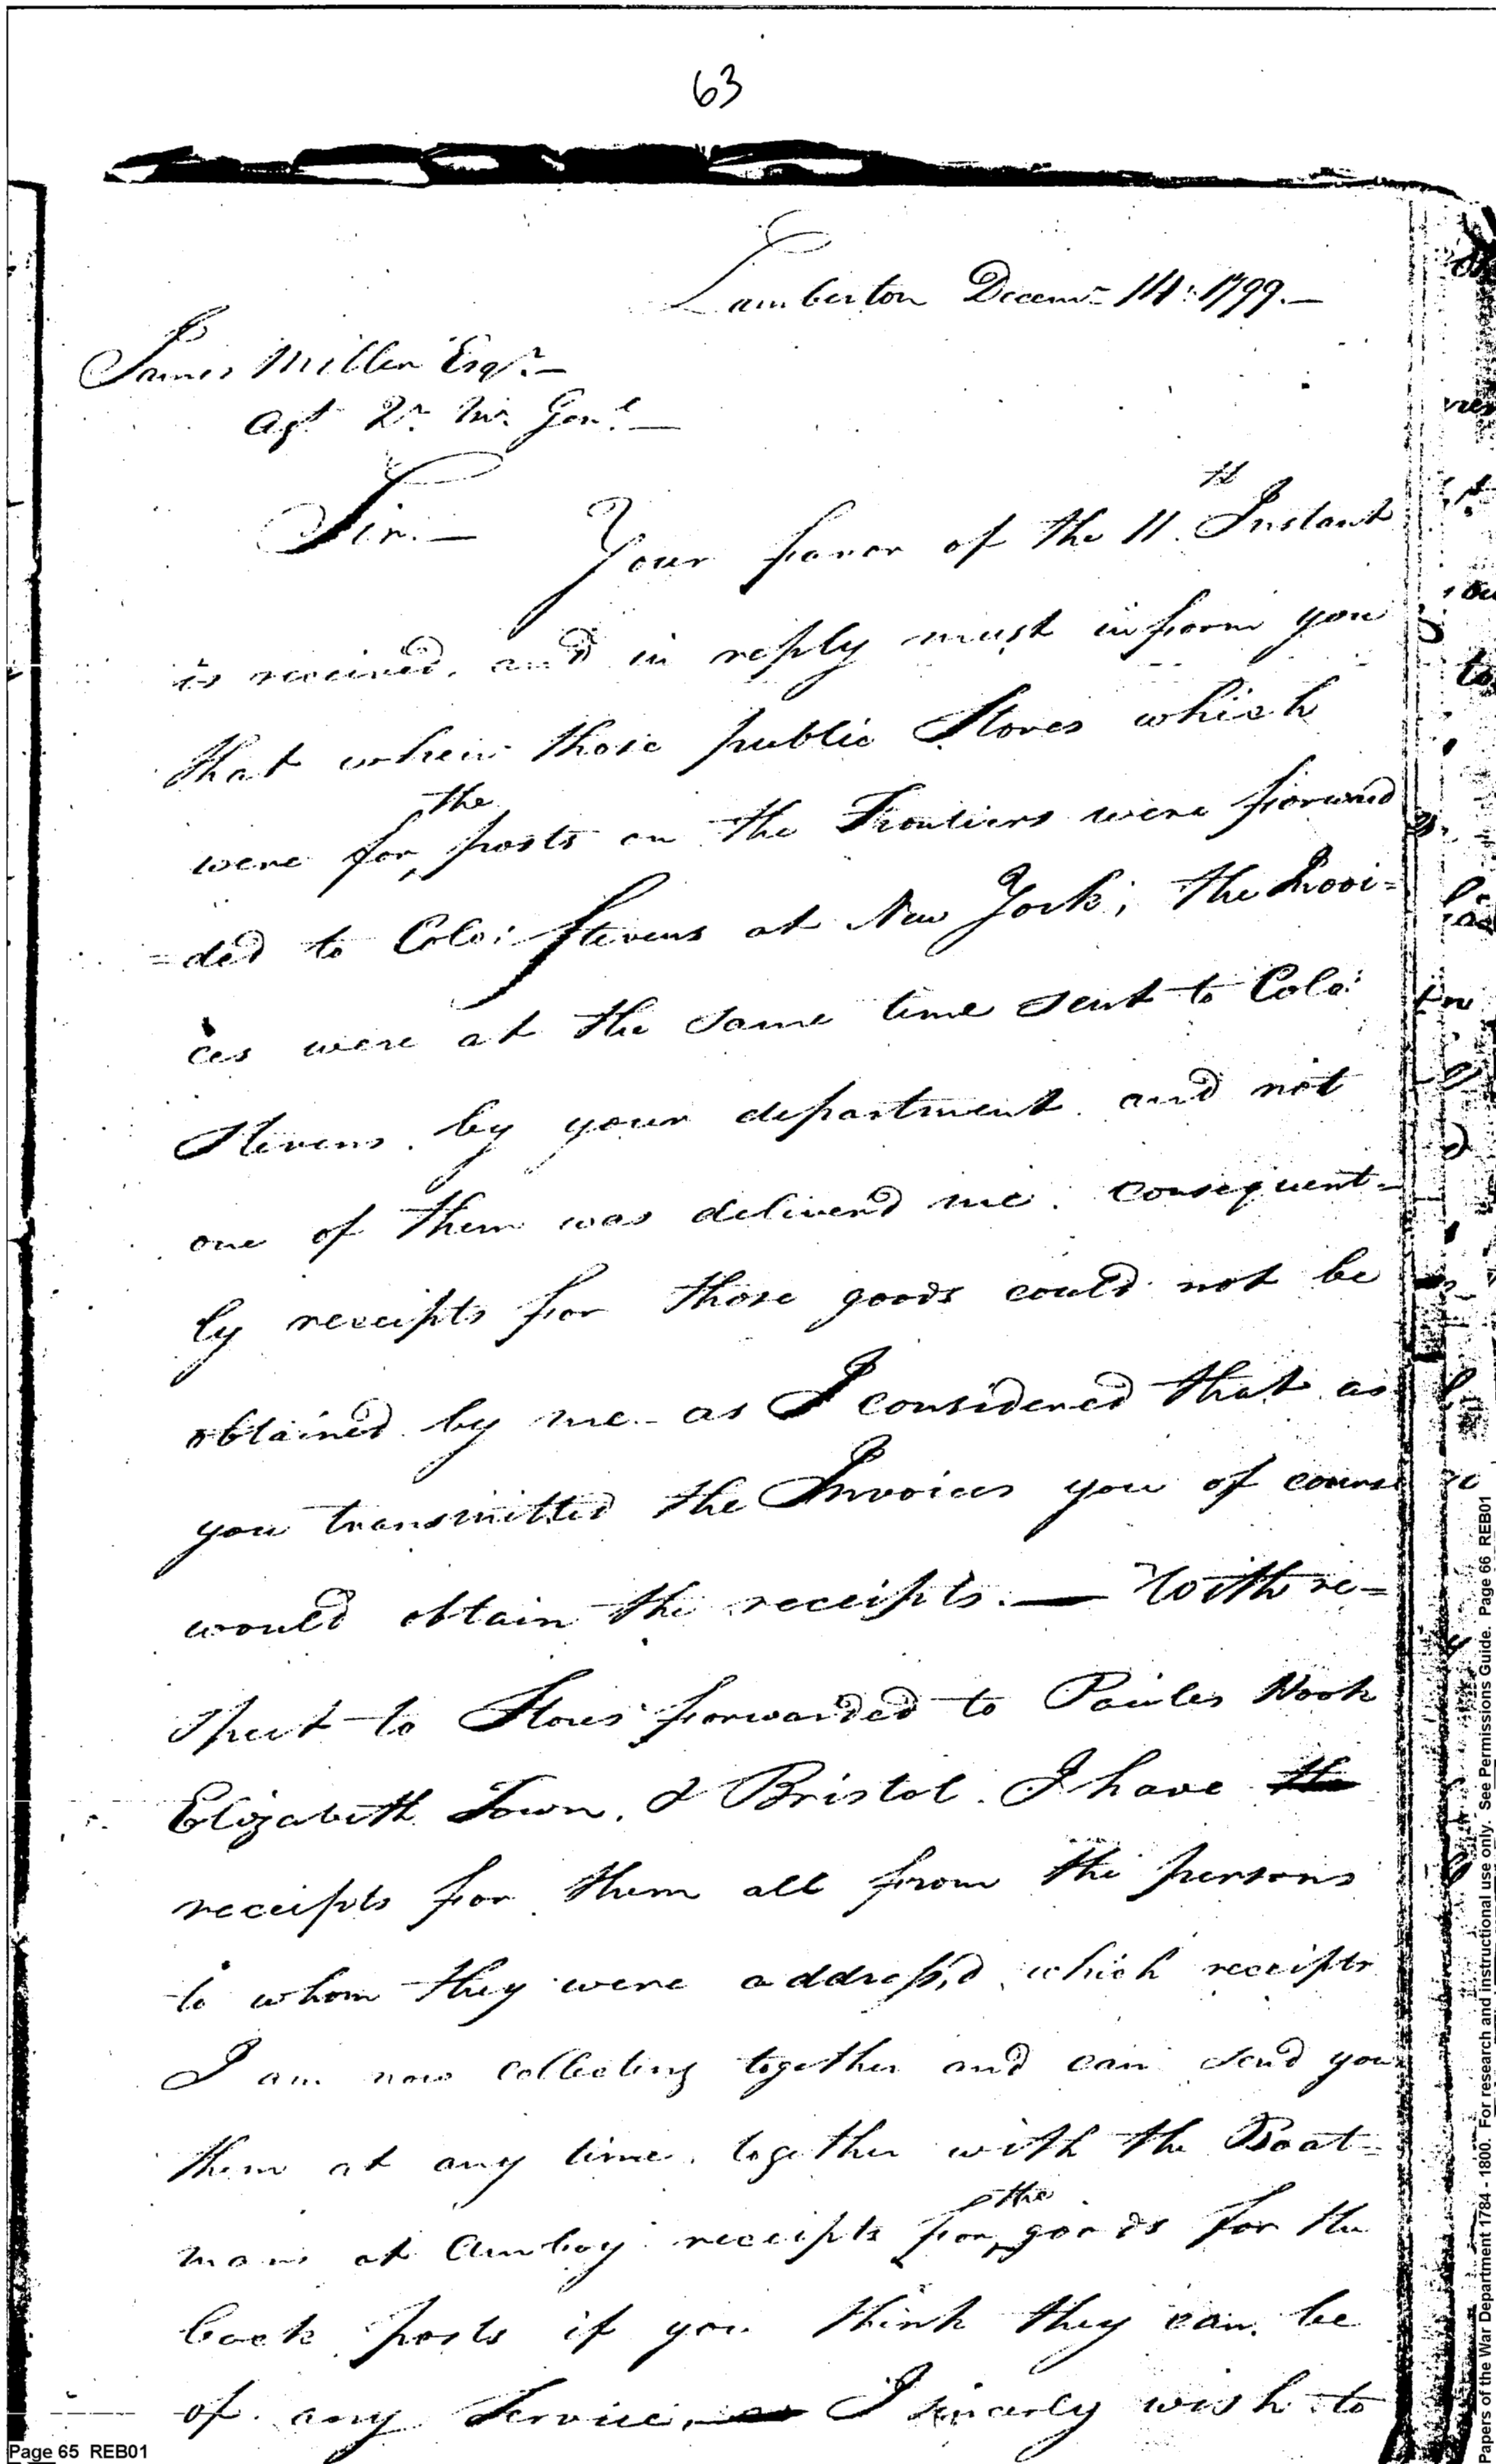 63
Lamberton Decemr 14: 1799.—
James Miller Esqr.—
Agt Qr Mr Genl.—
Sir.— Your favor of the 11th Instant
is received, and in reply must inform you
that when those public Stores which
were for the posts on the Frontiers were forwar̄d
=ded to Colo: Stevens at New York; the Invoi=
ces were at the same time sent to Colo:
Stevens by your department and not
one of them was deliver'd me. consequent=
ly receipts for those goods could not be
obtained by me - as I considered that as
you transmitted the Invoices you of course
would obtain the receipts.— With re=
spect to Stores forwarded to Paules Hook
Elizabeth Town, & Bristol. I have the
receipts for them all from the persons
to whom they were address,d which receipts
I am now collecting together and can send you
them at any time, together with the Boat=
mans at Amboy receipts for the goods for the
back posts if you think they can be
of any Service, I sincerly wish to
Page 65 REB01
Papers of the War Department 1784 - 1800. For research and instructional use only. See Permissions Guide. Page 66 REB01